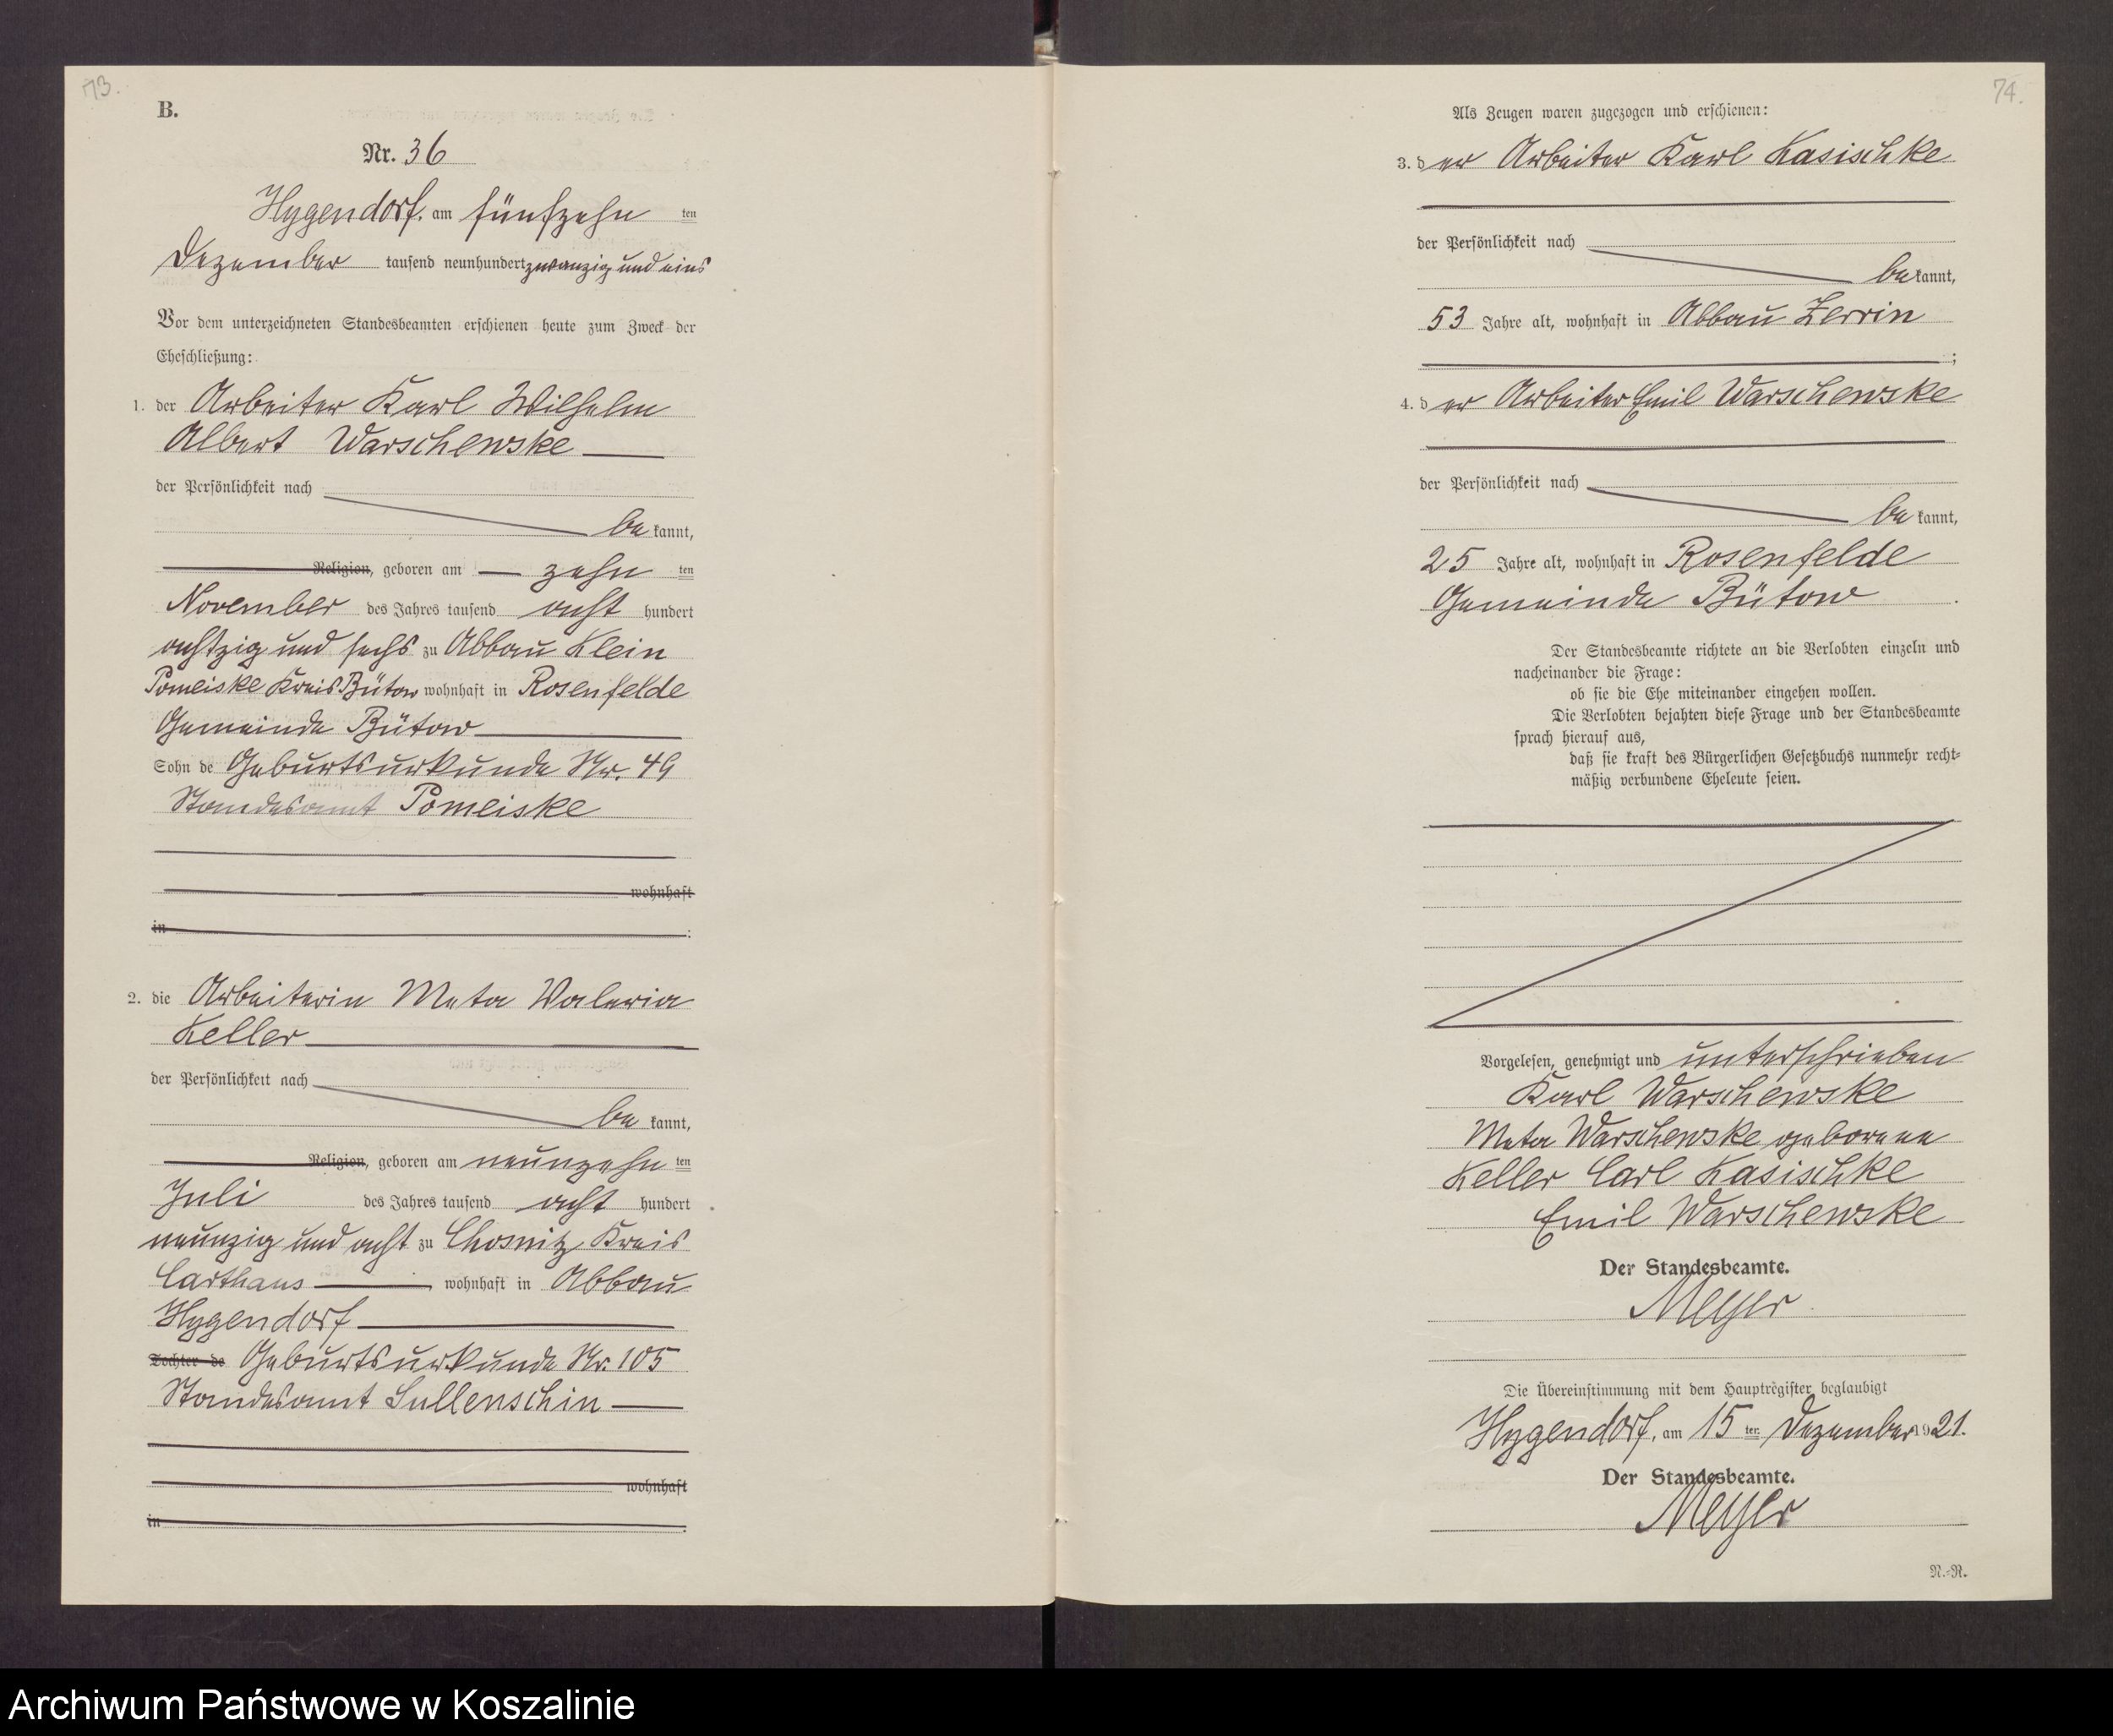 73.
B.
Nr. 36
Hygendorf, am fünfzehn ten
Dezember tausend neunhundert zwanzig und eins
Vor dem unterzeichneten Standesbeamten erschienen heute zum Zweck der
Eheschließung:
1. der Arbeiter Karl Wilhelm
Albert Warschewske
der Persönlichkeit nach
be kannt,
Religion, geboren am zehn ten
November des Jahres tausend acht hundert
achtzig und sechs zu Abbau Klein
Pomeiske Kreis Bütow wohnhaft in Rosenfelde
Gemeinde Bütow
Sohn de Geburtsurkunde Nr. 49
Standesamt Pomeiske
wohnhaft
in
2. die Arbeiterin Meta Valeria
Keller
der Persönlichkeit nach
be kannt,
Religion, geboren am neunzehn ten
Juli des Jahres tausend acht hundert
neunzig und acht zu Chosnitz Kreis
Carthaus wohnhaft in Abbau
Hygendorf
Tochter de Geburtsurkunde Nr. 105
Standesamt Sullenschin
wohnhaft
in
74.
Als Zeugen waren zugezogen und erschienen:
3. d er Arbeiter Karl Kasischke
der Persönlichkeit nach
be kannt,
53 Jahre alt, wohnhaft in Abbau Zerrin
;
4. d er Arbeiter Emil Warschewske
der Persönlichkeit nach
be kannt,
25 Jahre alt, wohnhaft in Rosenfelde
Gemeinde Bütow .
Der Standesbeamte richtete an die Verlobten einzeln und
nacheinander die Frage:
ob sie die Ehe miteinander eingehen wollen.
Die Verlobten bejahten diese Frage und der Standesbeamte
sprach hierauf aus,
daß sie kraft des Bürgerlichen Gesetzbuchs nunmehr recht-
mäßig verbundene Eheleute seien.
Vorgelesen, genehmigt und unterschrieben
Karl Warschewske
Meta Warschewske geborene
Keller Carl Kasischke
Emil Warschewske
Der Standesbeamte.
Meyer
Die Übereinstimmung mit dem Hauptregister beglaubigt
Hygendorf, am 15 ten Dezember 1921.
Der Standesbeamte.
Meyer
N.-R.
Archiwum Państwowe w Koszalinie